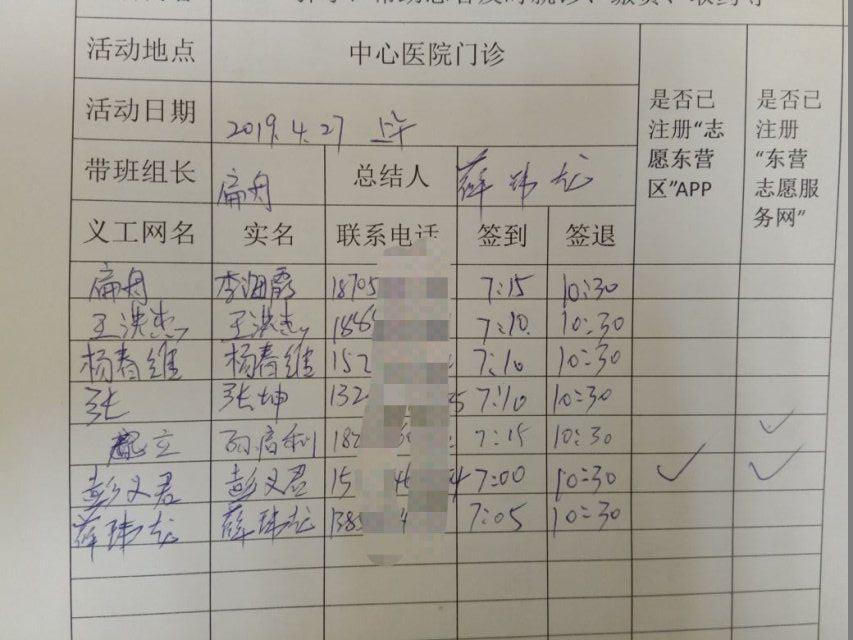 活动地点 中心医院门诊
是否已注册“志愿东营区”APP
是否已注册“东营志愿服务网”
活动日期 2019.4.27 上午
带班组长 扁舟 总结人 薛玮龙
义工网名 实名 联系电话 签到 签退
扁舟 李海霞 18705 7:15 10:30
王洪杰 王洪杰 188 7:10 10:30
杨春维 杨春维 152 7:10 10:30
张 张坤 132 5 7:10 10:30
立 利 18 7:15 10:30 ✓
彭义君 彭义君 15 4 7:00 10:30 ✓ ✓
薛玮龙 薛玮龙 138 7:05 10:30